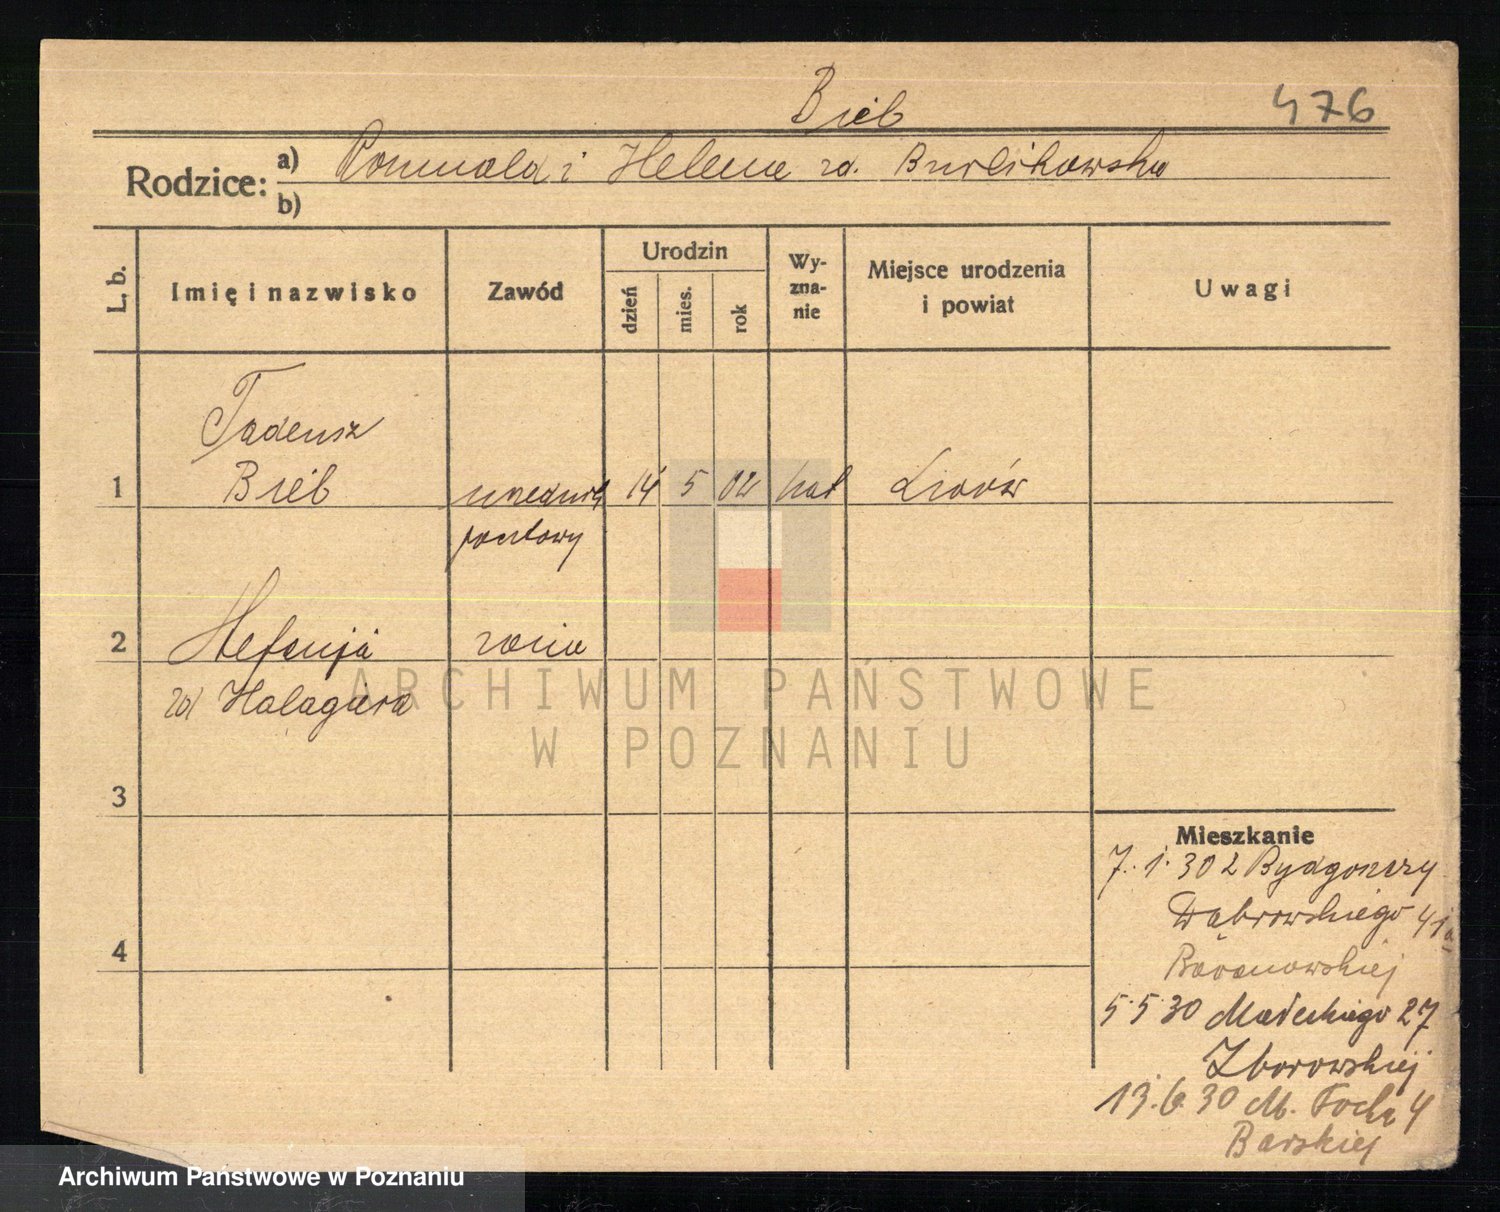 Bieb
476
Rodzice: a) Romuald i Helena zd. Burlikowska
b)
L. b.
Imię i nazwisko
Zawód
Urodzin
dzień
mies.
rok
Wy-
zna-
nie
Miejsce urodzenia
i powiat
Uwagi
Tadeusz
1 Bieb urzędnik 14 5 02 kat Lwów
pocztowy
2 Stefanja żona
zd
3
4
ARCHIWUM PAŃSTWOWE
W POZNANIU
Mieszkanie
7.1.30 z Bydgoszczy
Dąbrowskiego 41a
Baranowskiej
5.5.30 Małeckiego 27
Zborowskiej
13.6.30 M. Focha
Barskiej
Archiwum Państwowe w Poznaniu